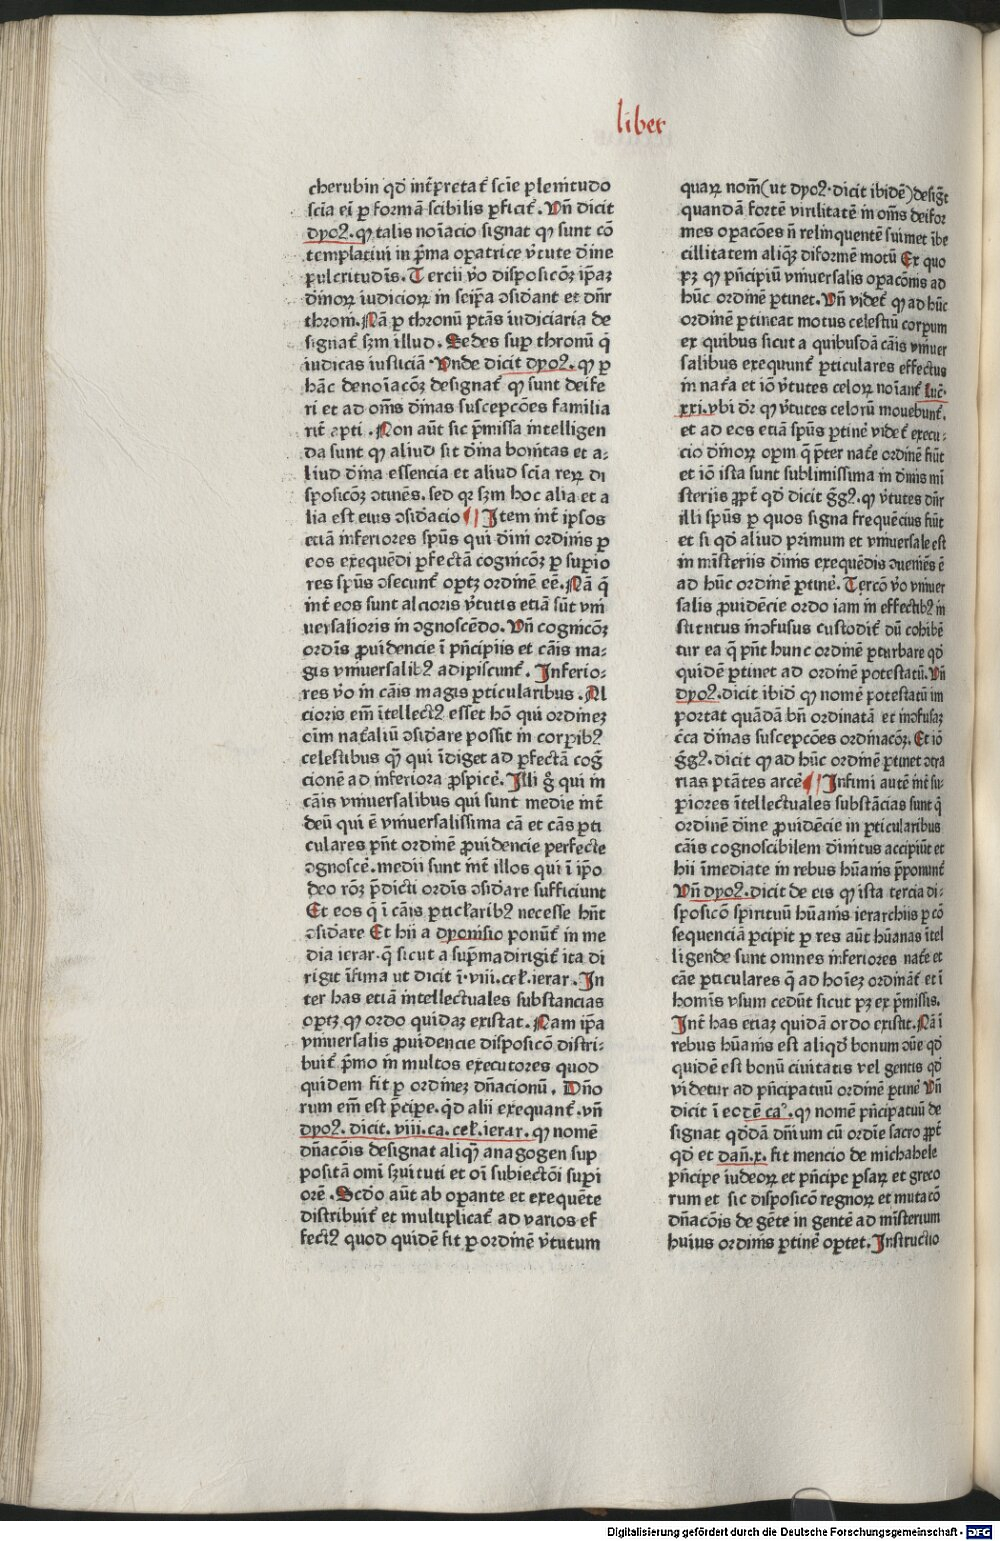 liber
cherubin qď int̄p̄retat᷑ scīe plenitudo
scīa eī ꝑ formā scibilis ꝑficit᷑. Vn̄ dicit
dyoꝰ. ꝙ talis noīacio signat ꝙ sunt cō
templatiui in p̄ma oꝑatrice v̓tute dīne
pulcritudīs. Tercii v̓o disposicōꝫ ip̄aꝫ
dīnoꝝ iudicioꝝ in seip̄a ɔsid̓ant et dn̄r
throni. Nā ꝑ thronū ptās iudiciaria de
signat᷑ ẜm illud. Sedes suꝑ thronū q̇
iudicas iusticiā. Vnde dicit dyoꝰ. ꝙ ꝑ
hāc denoīacōꝫ designat᷑ ꝙ sunt deife
ri et ad om̄s dīnas suscepcōes familia
rit̓ apti. Non aūt sic p̄missa intelligen
da sunt ꝙ aliud sit dīna bonitas et a⸗
liud dīna essencia et aliud scīa reꝝ di
sposicōꝫ ɔtinēs. sed qꝛ ẜm hoc alia et a
lia est eius ɔsid̓acio ¶ Item int̓ ipsos
etiā inferiores spūs qui dīni ordinis ꝑ
eos exequēdi ꝑfectā cognicōꝫ ꝑ suꝑio
res spūs ɔsecunt᷑ oꝑtꝫ ordinē eē. Nā q̇
int̓ eos sunt alcioris v̓tutis etiā sūt vni
uersalioris in ɔgnoscēdo. Vn̄ cognicōꝫ
ordīs ꝓuidencie ī pn̄cipiis et cāis ma⸗
gis vniuersalibꝰ adipiscunt᷑. Inferio⸗
res v̓o in cāis magis ꝑticularibus. Al
cioris em̄ ītellectꝰ esset hō qui ordinez
oīm nat᷑aliū ɔsid̓are possit in corꝑibꝰ
celestibus qꝫ qui īdiget ad ꝑfectā cog
cionē ad inferiora ꝓspicē. Illi g̓ qui in
cāis vniuersalibus qui sunt medie int̓
deū qui ē vniuersalissima cā et cās ꝑti
culares pn̄t ordinē ꝓuidencie perfecte
ɔgnoscē. medii sunt int̓ illos qui ī ip̄o
deo rōꝫ p̄dicti ordīs ɔsid̓are sufficiunt
Et eos q̇ ī cāis ꝑticl̓aribꝰ necesse hn̄t
ɔsid̓are Et hii a dyonisio ponūt᷑ in me
dia ierar. q̇ sicut a sup̄ma dirigit᷑ ita di
rigit īfima ut dicit ī. viii. cel̓. ierar. In
ter has etiā intellectuales substancias
oꝑtꝫ ꝙ ordo quidaꝫ existat. Nam ip̄a
vniuersalis ꝓuidencie disposicō distri⸗
buit᷑ p̄mo in multos executores quod
quidem fit ꝑ ordinez dn̄acionū. Dn̄o
rum em̄ est p̄cipe. qď alii exequant᷑. vn̄
dyoꝰ. dicit. viii. ca. cel̓. ierar. ꝙ nomē
dn̄acōis designat aliqꝫ anagogen sup
positā omī s̓uituti et oī subiectōi suꝑi
orē. Scďo aūt ab oꝑante et exequēte
distribuit᷑ et multiplicat᷑ ad varios ef
fectꝰ quod quidē fit ꝑ ordinē v̓tutum
quaꝝ nom̄ (ut dyoꝰ. dicit ibidē) desig̓t
quandā fortē virilitatē in om̄s deifor
mes oꝑacōes n̄ relinquentē suimet ībe
cillitatem aliqꝫ diformē motū Ex quo
pꝫ ꝙ pn̄cipiū vniuersalis oꝑacōnis ad
hūc ordinē ꝑtinet. Vn̄ videt᷑ ꝙ ad hūc
ordinē ꝑtineat motus celestiū corpum
ex quibus sicut a quibusdā cāis vniuer
salibus exequunt᷑ ꝑticulares effectus
in nat᷑a et iō v̓tutes celoꝝ noīant᷑ luč.
xxi. vbi dr̄ ꝙ v̓tutes celorū mouebunt᷑.
et ad eos etiā spūs ꝑtinē videt᷑ execu⸗
cio dīnoꝝ oꝑm q̇ p̄ter nat᷑e ordinē fiūt
et iō ista sunt sublimissima in dīnis mi
steriis ꝓpt̓ qď dicit ggꝰ. ꝙ v̓tutes dn̄r
illi spūs ꝑ quos signa frequēcius fiūt
et si qď aliud primum et vniuersale est
in mīsteriis dīnis exequēdis ɔueniēs ē
ad hūc ordinē ꝑtinē. Tercō v̓o vniuer
salis ꝓuidēcie ordo iam in effectibꝰ in
stitutus inɔfusus custodit᷑ dū cohibē
tur ea q̇ pn̄t hunc ordinē ꝑturbare qď
quidē ꝑtinet ad ordinē potestatū. Vn̄
dyoꝰ. dicit ibiď ꝙ nomē potestatū im
portat quādā bn̄ ordinatā et inɔfusaꝫ
c̓ca dīnas suscepcōes ordinacōꝫ. Et iō
ggꝰ. dicit ꝙ ad hūc ordinē ꝑtinet ɔtra
rias ptātes arcē ¶ Infimi autē int̓ su⸗
ꝑiores ītellectuales substācias sunt q̇
ordinē dīne ꝓuidēcie in ꝑticularibus
cāis cognoscibilem diuinitus accipiūt et
hii īmediate in rebus hūanis p̄ponunt᷑
Vn̄ dyoꝰ. dicit de eis ꝙ ista tercia di⸗
sposicō spirituū hūanis ierarchiis ꝑ cō
sequenciā p̄cipit ꝑ res aūt hūanas ītel
ligende sunt omnes inferiores nat᷑e et
cāe ꝑticulares q̇ ad hoīeꝫ ordināt᷑ et ī
hominis vsum cedūt sicut pꝫ ex p̄missis.
Int̓ has etiaꝫ quidā ordo existit. Nā ī
rebus hūanis est aliqď bonum ɔūe qď
quidē est bonū ciuitatis vel gentis qď
videtur ad pn̄cipatuū ordinē ꝑtinē Vn̄
dicit ī eodē caº. ꝙ nomē pn̄cipatuū de
signat qďdā dn̄ium cū ordīe sacro ꝓpt̓
qď et dan̄. x. fit mencio de michahele
pn̄cipe iudeoꝝ et pn̄cipe ꝑsaꝝ et greco
rum et sic disposicō regnoꝝ et mutacō
dn̄acōis de gēte in gentē ad mīsterium
huius ordinis ꝑtinē oꝑtet. Instructio
Digitalisierung gefördert durch die Deutsche Forschungsgemeinschaft - DFG